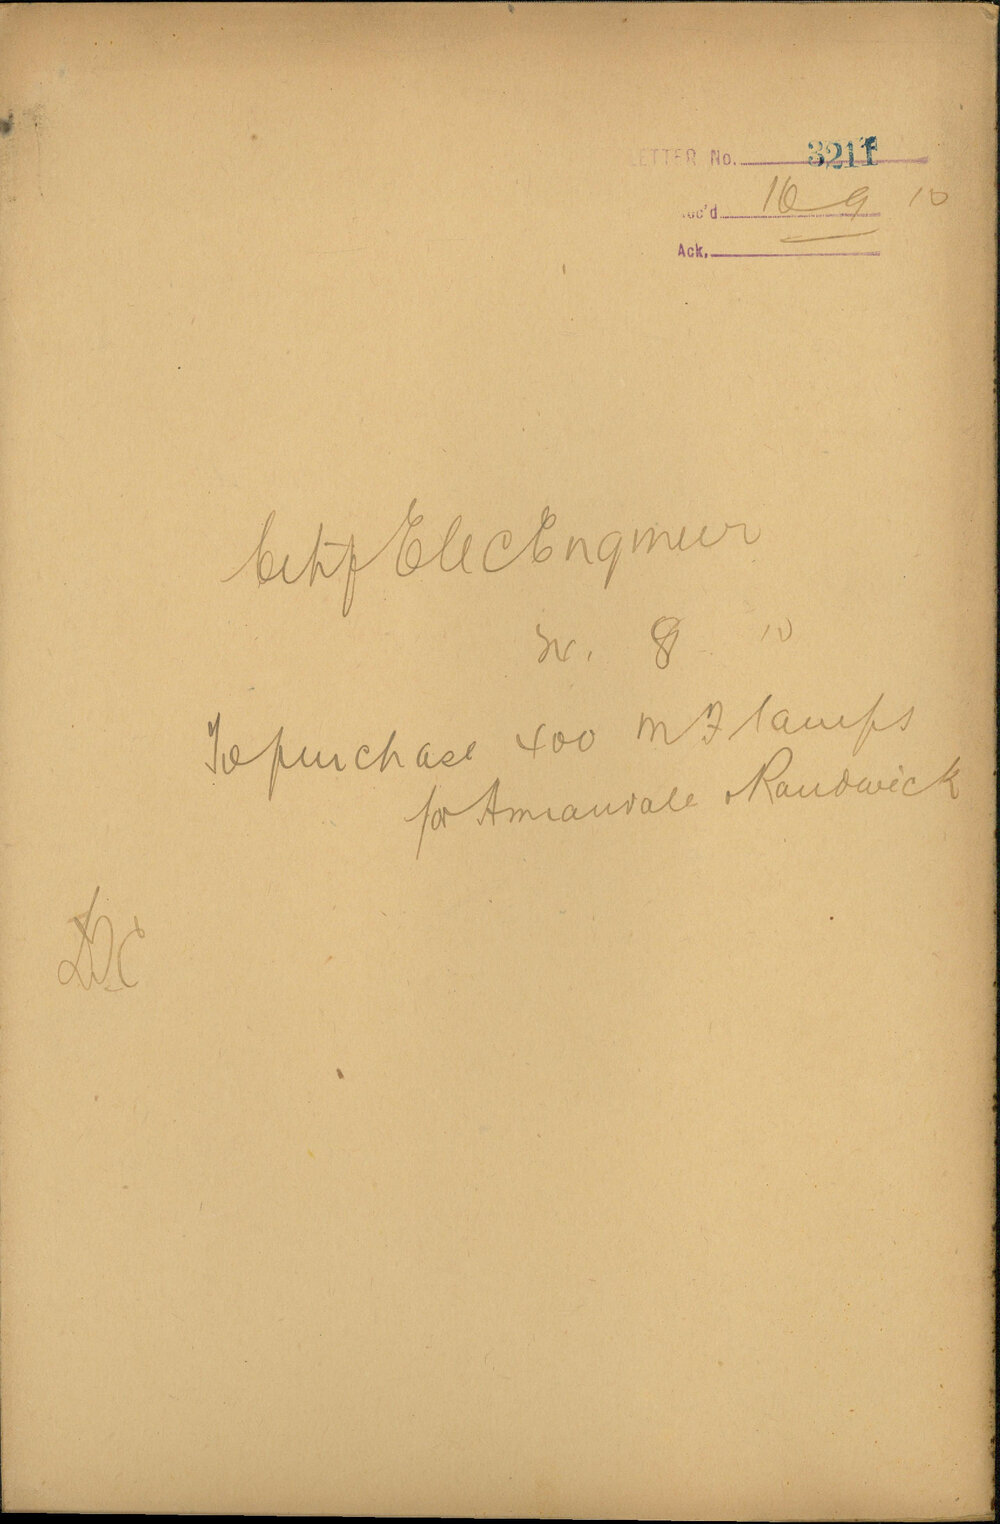 LETTER No. 3211
Rec'd 16 9 10
Ack.
Elec Engineer
8 10
To purchase 400 M F lamps
for Annandale & Randwick